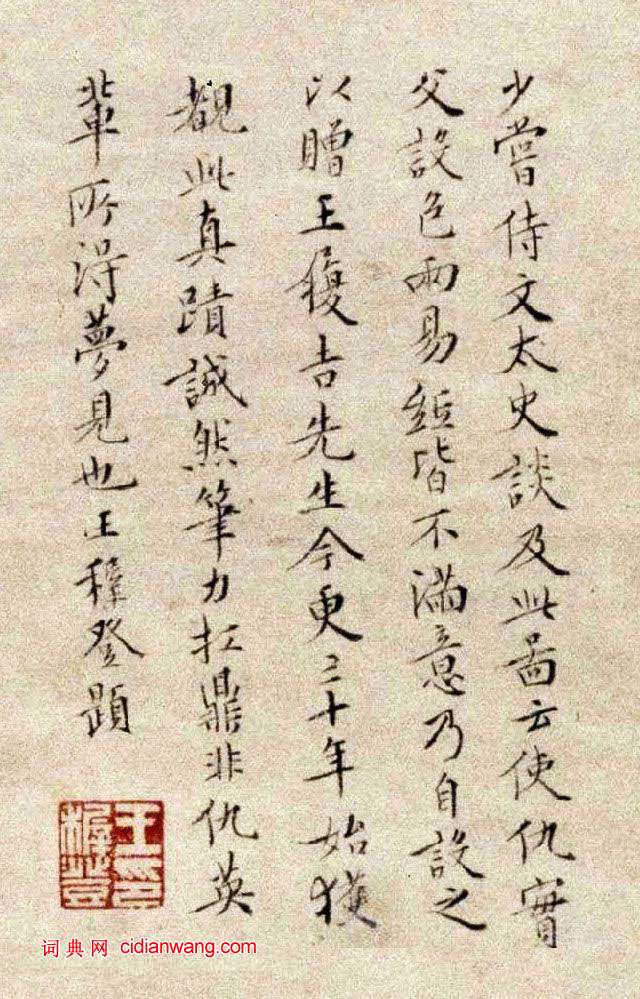 少嘗侍文太史談及此啚云使仇實
父設色兩易紙皆不滿意乃自設之
以贈王履吉先生今更二十年始獲
觀此真蹟誠然筆力扛鼎非仇英
輩所得夢見也王穉登題
王穉登印
词典网 cidianwang.com